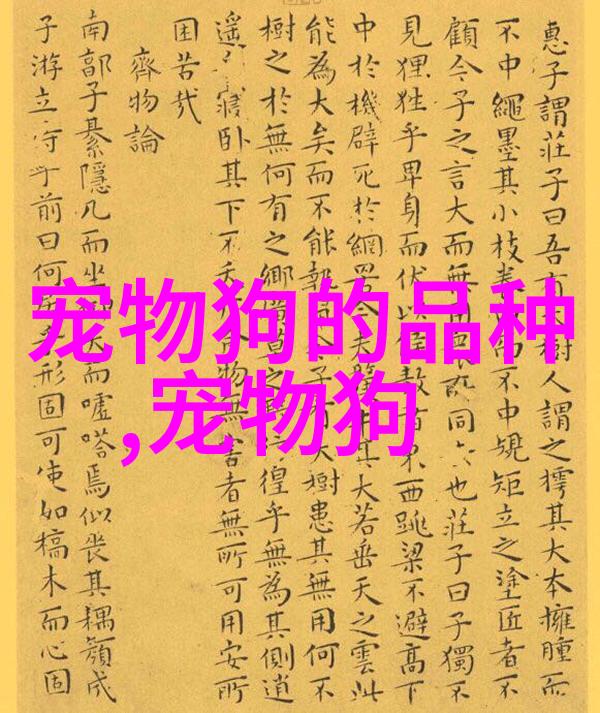 惠子謂莊子曰吾有樹人謂之樗其大本擁腫而
不中繩墨其小枝卷而不中規矩立之塗匠者不
顧今子之言大而無用所同也莊子曰子獨不
見狸狌乎卑身而伏以候敖者東西跳梁不避高下
中於機辟死於網罟今夫其大若垂天之雲此
能為大矣而不能執今子有大樹患其無用何不
樹之於無何有之鄉莫之徨乎無為其側逍
遙寢臥其下不夭物無害者無所可用安所
困苦哉
齊物論
南郭子綦隱几而坐天而噓嗒焉似喪其耦顏成
子游立侍乎前曰何乎形固可使如槁木而心固
宠物狗的品种
,宠物狗